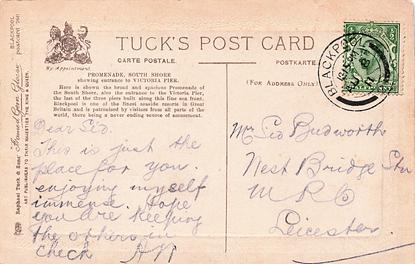 TUCK'S POST CARD
CARTE POSTALE.
POSTKARTE.
By Appointment.
PROMENADE, SOUTH SHORE
showing entrance to VICTORIA PIER.
Here is shown the broad and spacious Promenade of
the South Shore, also the entrance to the Victoria Pier,
the last of the three piers built along this fine sea front.
Blackpool is one of the finest seaside resorts in Great
Britain and is patronised by visitors from all parts of the
world, there being a never ending source of amusement.
(FOR ADDRESS ONLY.)
BLACKPOOL
Dear Sid.
This is just the
place for you
enjoying myself
immense. Hope
you are keeping
the others in
check
Mr Sid Budworth
West Bridge Stn
M R Co
Leicester.
Raphael Tuck & Sons
BLACKPOOL